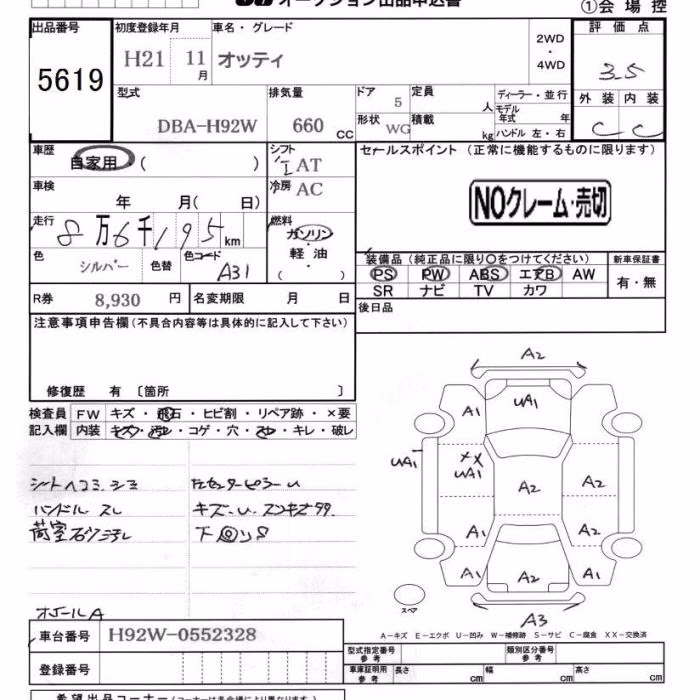 オークション出品申込書
①会場控
出品番号
5619
初度登録年月
H21 11月
車名・グレード
オッティ
2WD
・
4WD
評価点
3.5
外装 内装
C C
型式
DBA-H92W
排気量
660 CC
ドア 5
形状 WG
定員 人
積載 kg
ディーラー・並行
モデル年式 年
ハンドル 左・右
車歴
自家用 ( )
シフト
I AT
車検
年 月( 日)
冷房 AC
走行
8万6千195km
燃料
ガソリン
軽・油
( )
色 シルバー 色替
色コード A31
R券 8,930 円
名変期限 月 日
セールスポイント (正常に機能するものに限ります)
NOクレーム・売切
装備品(純正品に限り○をつけてください)
PS PW ABS エアB AW
SR ナビ TV カワ
新車保証書
有・無
後日品
注意事項申告欄(不具合内容等は具体的に記入して下さい)
修復歴 有 〔箇所 〕
検査員記入欄
FW キズ・飛石・ヒビ割・リペア跡・×要
内装 キズ・汚レ・コゲ・穴・スレ・キレ・破レ
シートヘコミ.シミ
ハンドル スレ
荷室
キズ.U.
A2
A1
UA1
UA1
XX
UA1
A2
A2
A2
A1
A1
A1
A2
A1
A3
スペア
A-キズ E-エクボ U-凹み W-補修跡 S-サビ C-腐食 XX-交換済
車台番号 H92W-0552328
登録番号
型式指定番号 参考
類別区分番号 参考
車庫証明用 参考 長さ cm 幅 cm 高さ cm
希望出品コーナー